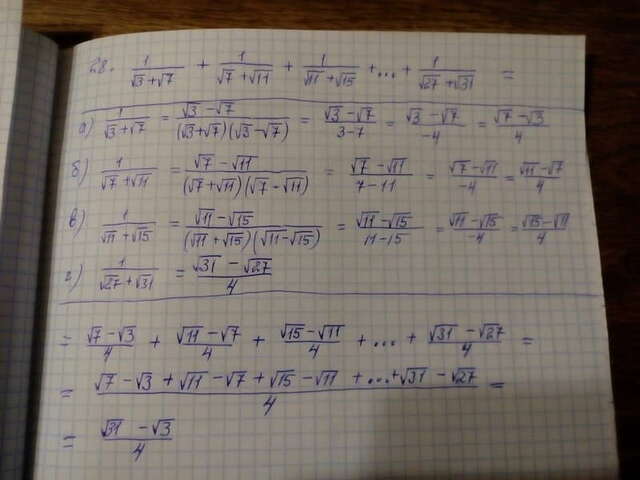 28. 1/(√3+√7) + 1/(√7+√11) + 1/(√11+√15) +...+ 1/(√27+√31) =
а) 1/(√3+√7) = (√3-√7)/((√3+√7)(√3-√7)) = (√3-√7)/(3-7) = (√3-√7)/(-4) = (√7-√3)/4
б) 1/(√7+√11) = (√7-√11)/((√7+√11)(√7-√11)) = (√7-√11)/(7-11) = (√7-√11)/(-4) = (√11-√7)/4
в) 1/(√11+√15) = (√11-√15)/((√11+√15)(√11-√15)) = (√11-√15)/(11-15) = (√11-√15)/(-4) = (√15-√11)/4
г) 1/(√27+√31) = (√31-√27)/4
= (√7-√3)/4 + (√11-√7)/4 + (√15-√11)/4 +...+ (√31-√27)/4 =
= (√7-√3+√11-√7+√15-√11+...+√31-√27)/4 =
= (√31-√3)/4